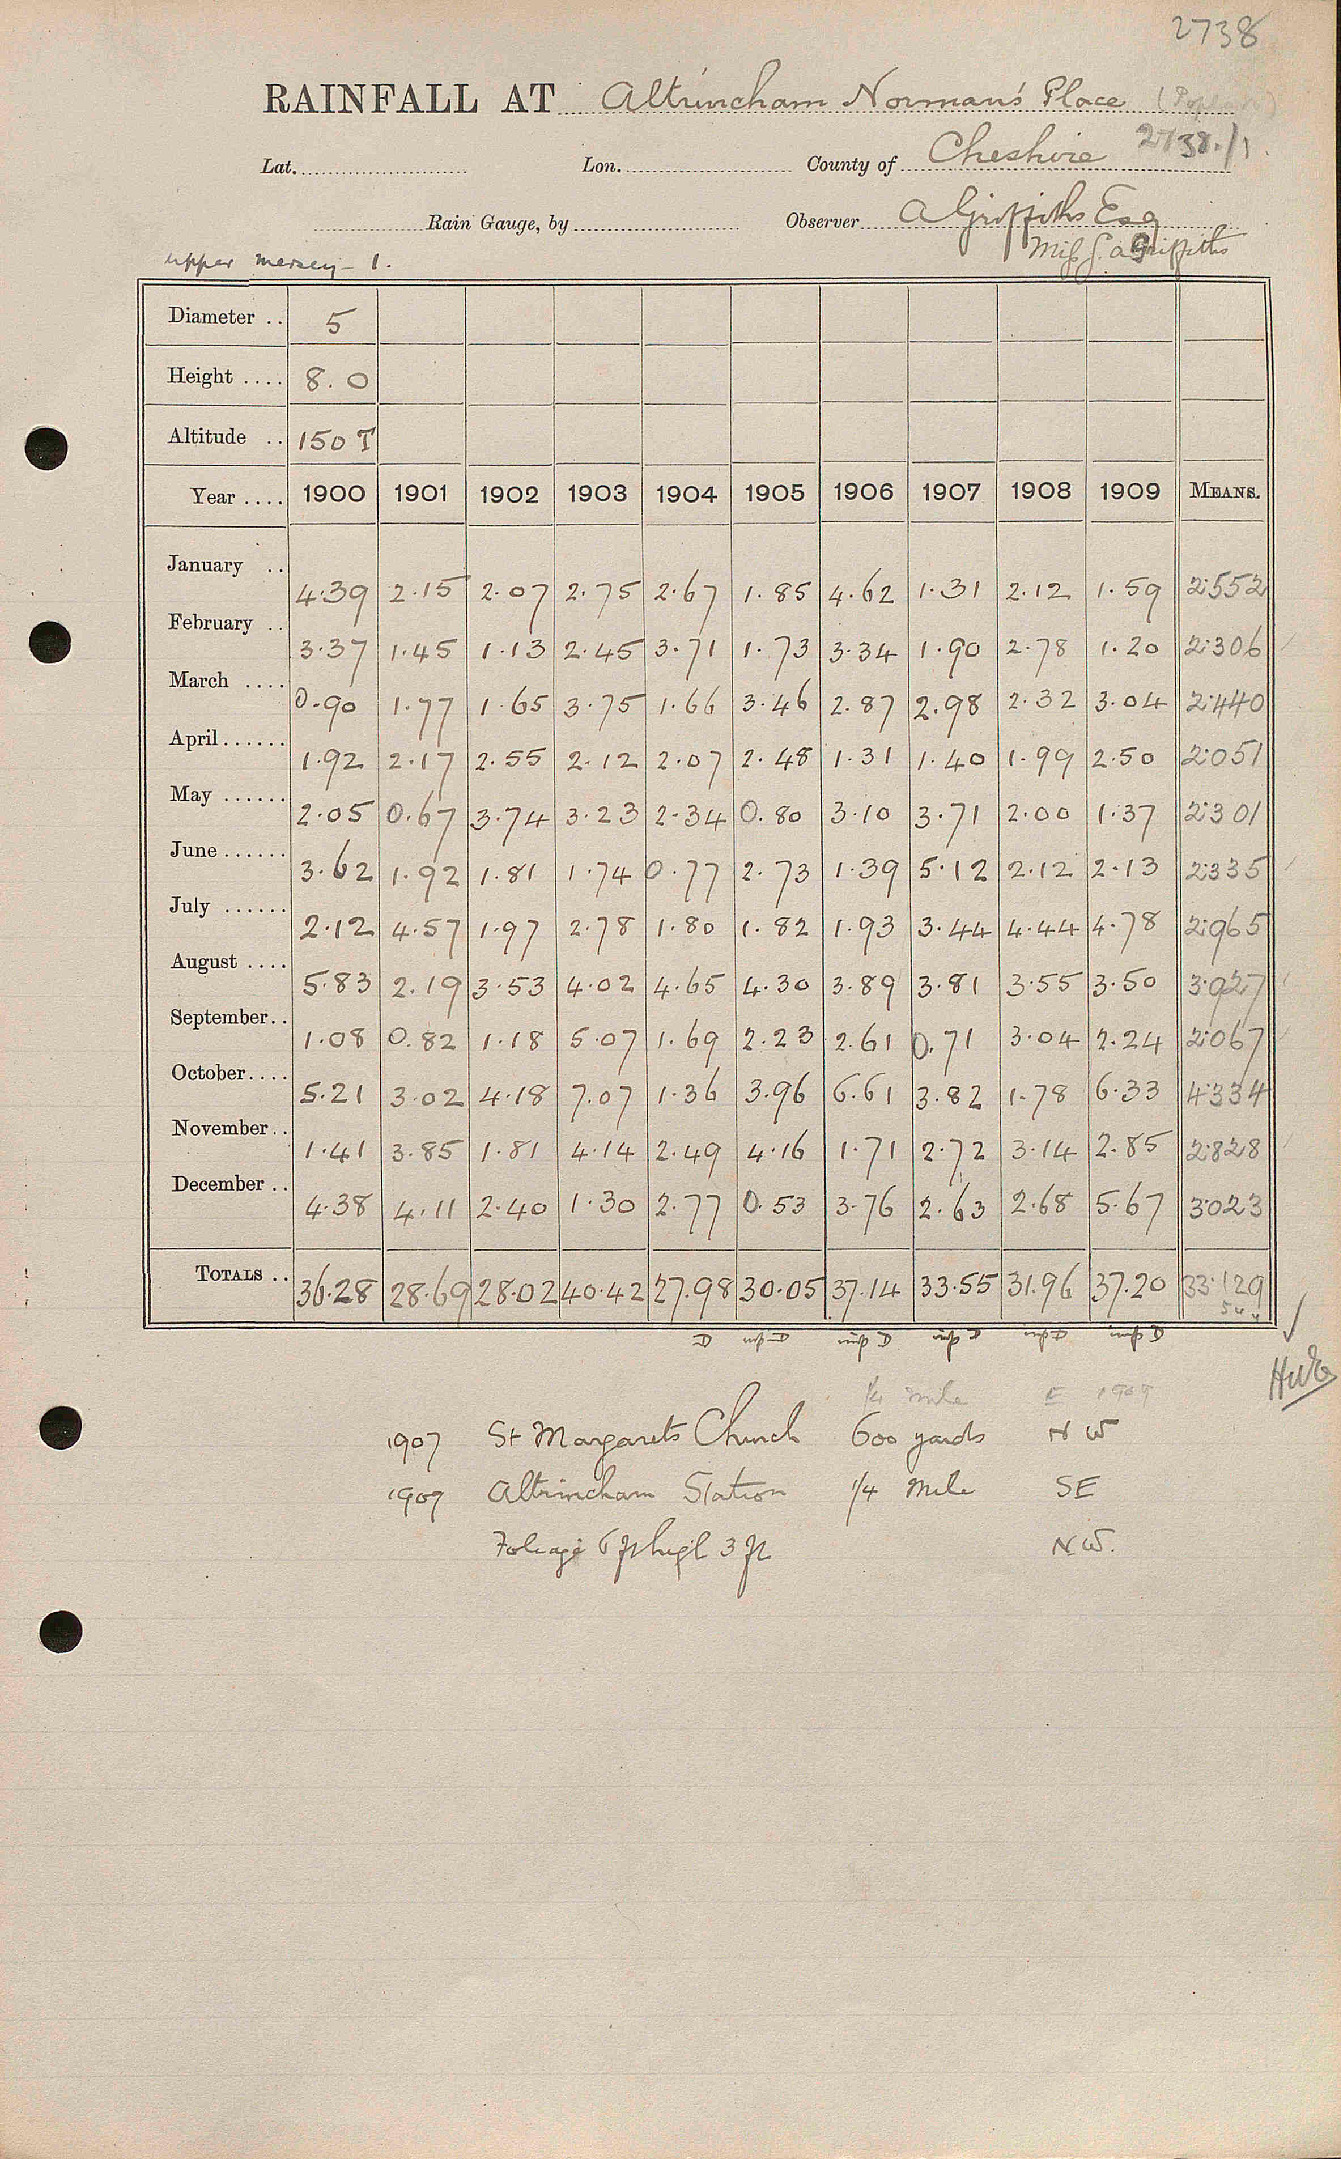 2738
RAINFALL AT Altrincham Norman's Place
Lat. Lon. County of Cheshire 2738./1.
Rain Gauge, by Observer A Griffiths Esq
Upper Mersey - 1. Miss G. A. Griffiths
Diameter .. 5
Height .... 8. 0
Altitude .. 150 T
Year .... 1900 1901 1902 1903 1904 1905 1906 1907 1908 1909 MEANS.
January .. 4.39 2.15 2.07 2.75 2.67 1.85 4.62 1.31 2.12 1.59 2.552
February .. 3.37 1.45 1.13 2.45 3.71 1.73 3.34 1.90 2.78 1.20 2.306
March .... 0.90 1.77 1.65 3.75 1.66 3.46 2.87 2.98 2.32 3.04 2.440
April...... 1.92 2.17 2.55 2.12 2.07 2.48 1.31 1.40 1.99 2.50 2.051
May ...... 2.05 0.67 3.74 3.23 2.34 0.80 3.10 3.71 2.00 1.37 2.301
June ...... 3.62 1.92 1.81 1.74 0.77 2.73 1.39 5.12 2.12 2.13 2.335
July ...... 2.12 4.57 1.97 2.78 1.80 1.82 1.93 3.44 4.44 4.78 2.965
August .... 5.83 2.19 3.53 4.02 4.65 4.30 3.89 3.81 3.55 3.50 3.927
September.. 1.08 0.82 1.18 5.07 1.69 2.23 2.61 0.71 3.04 2.24 2.067
October.... 5.21 3.02 4.18 7.07 1.36 3.96 6.61 3.82 1.78 6.33 4.334
November.. 1.41 3.85 1.81 4.14 2.49 4.16 1.71 2.72 3.14 2.85 2.828
December .. 4.38 4.11 2.40 1.30 2.77 0.53 3.76 2.63 2.68 5.67 3.023
TOTALS .. 36.28 28.69 28.02 40.42 27.98 30.05 37.14 33.55 31.96 37.20 33.129
1/4 mile E 1909
1907 St Margarets Church 600 yards N W
1907 Altrincham Station 1/4 mile SE
Foliage 6 ft high 3 ft N.W.